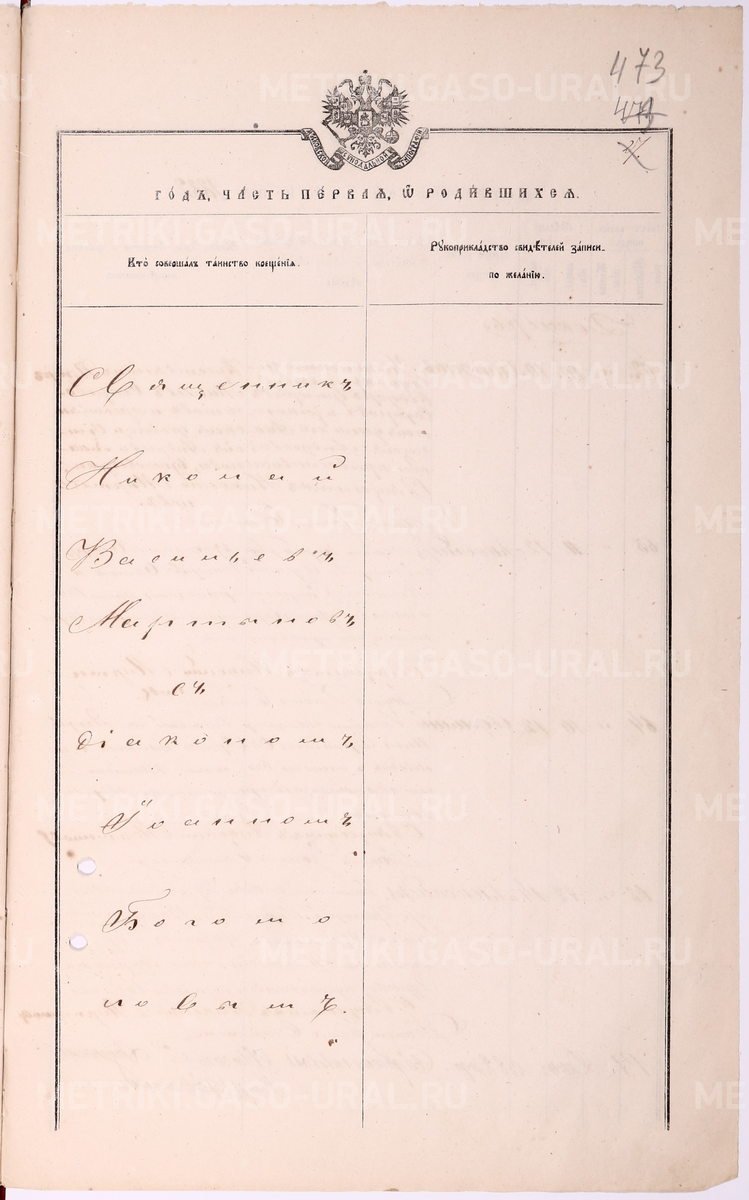 473
МОСКОВСКОЙ СѴНОДАЛЬНОЙ ТИПОГРАФІИ
ГО́ДЪ, ЧА́СТЬ ПЕ́РВАѦ, Ѡ҆ РОДИ́ВШИХСѦ.
Кто̀ соверша́лъ та́инство креще́нїѧ.
Рꙋкоприкла́дство свидѣ́телей за́писи
по жела́нїю.
Священникъ
Николай
Васильевъ
Мартыновъ
съ
діакономъ
Іоанномъ
Богомо
ловымъ.
METRIKI.GASO-URAL.RU